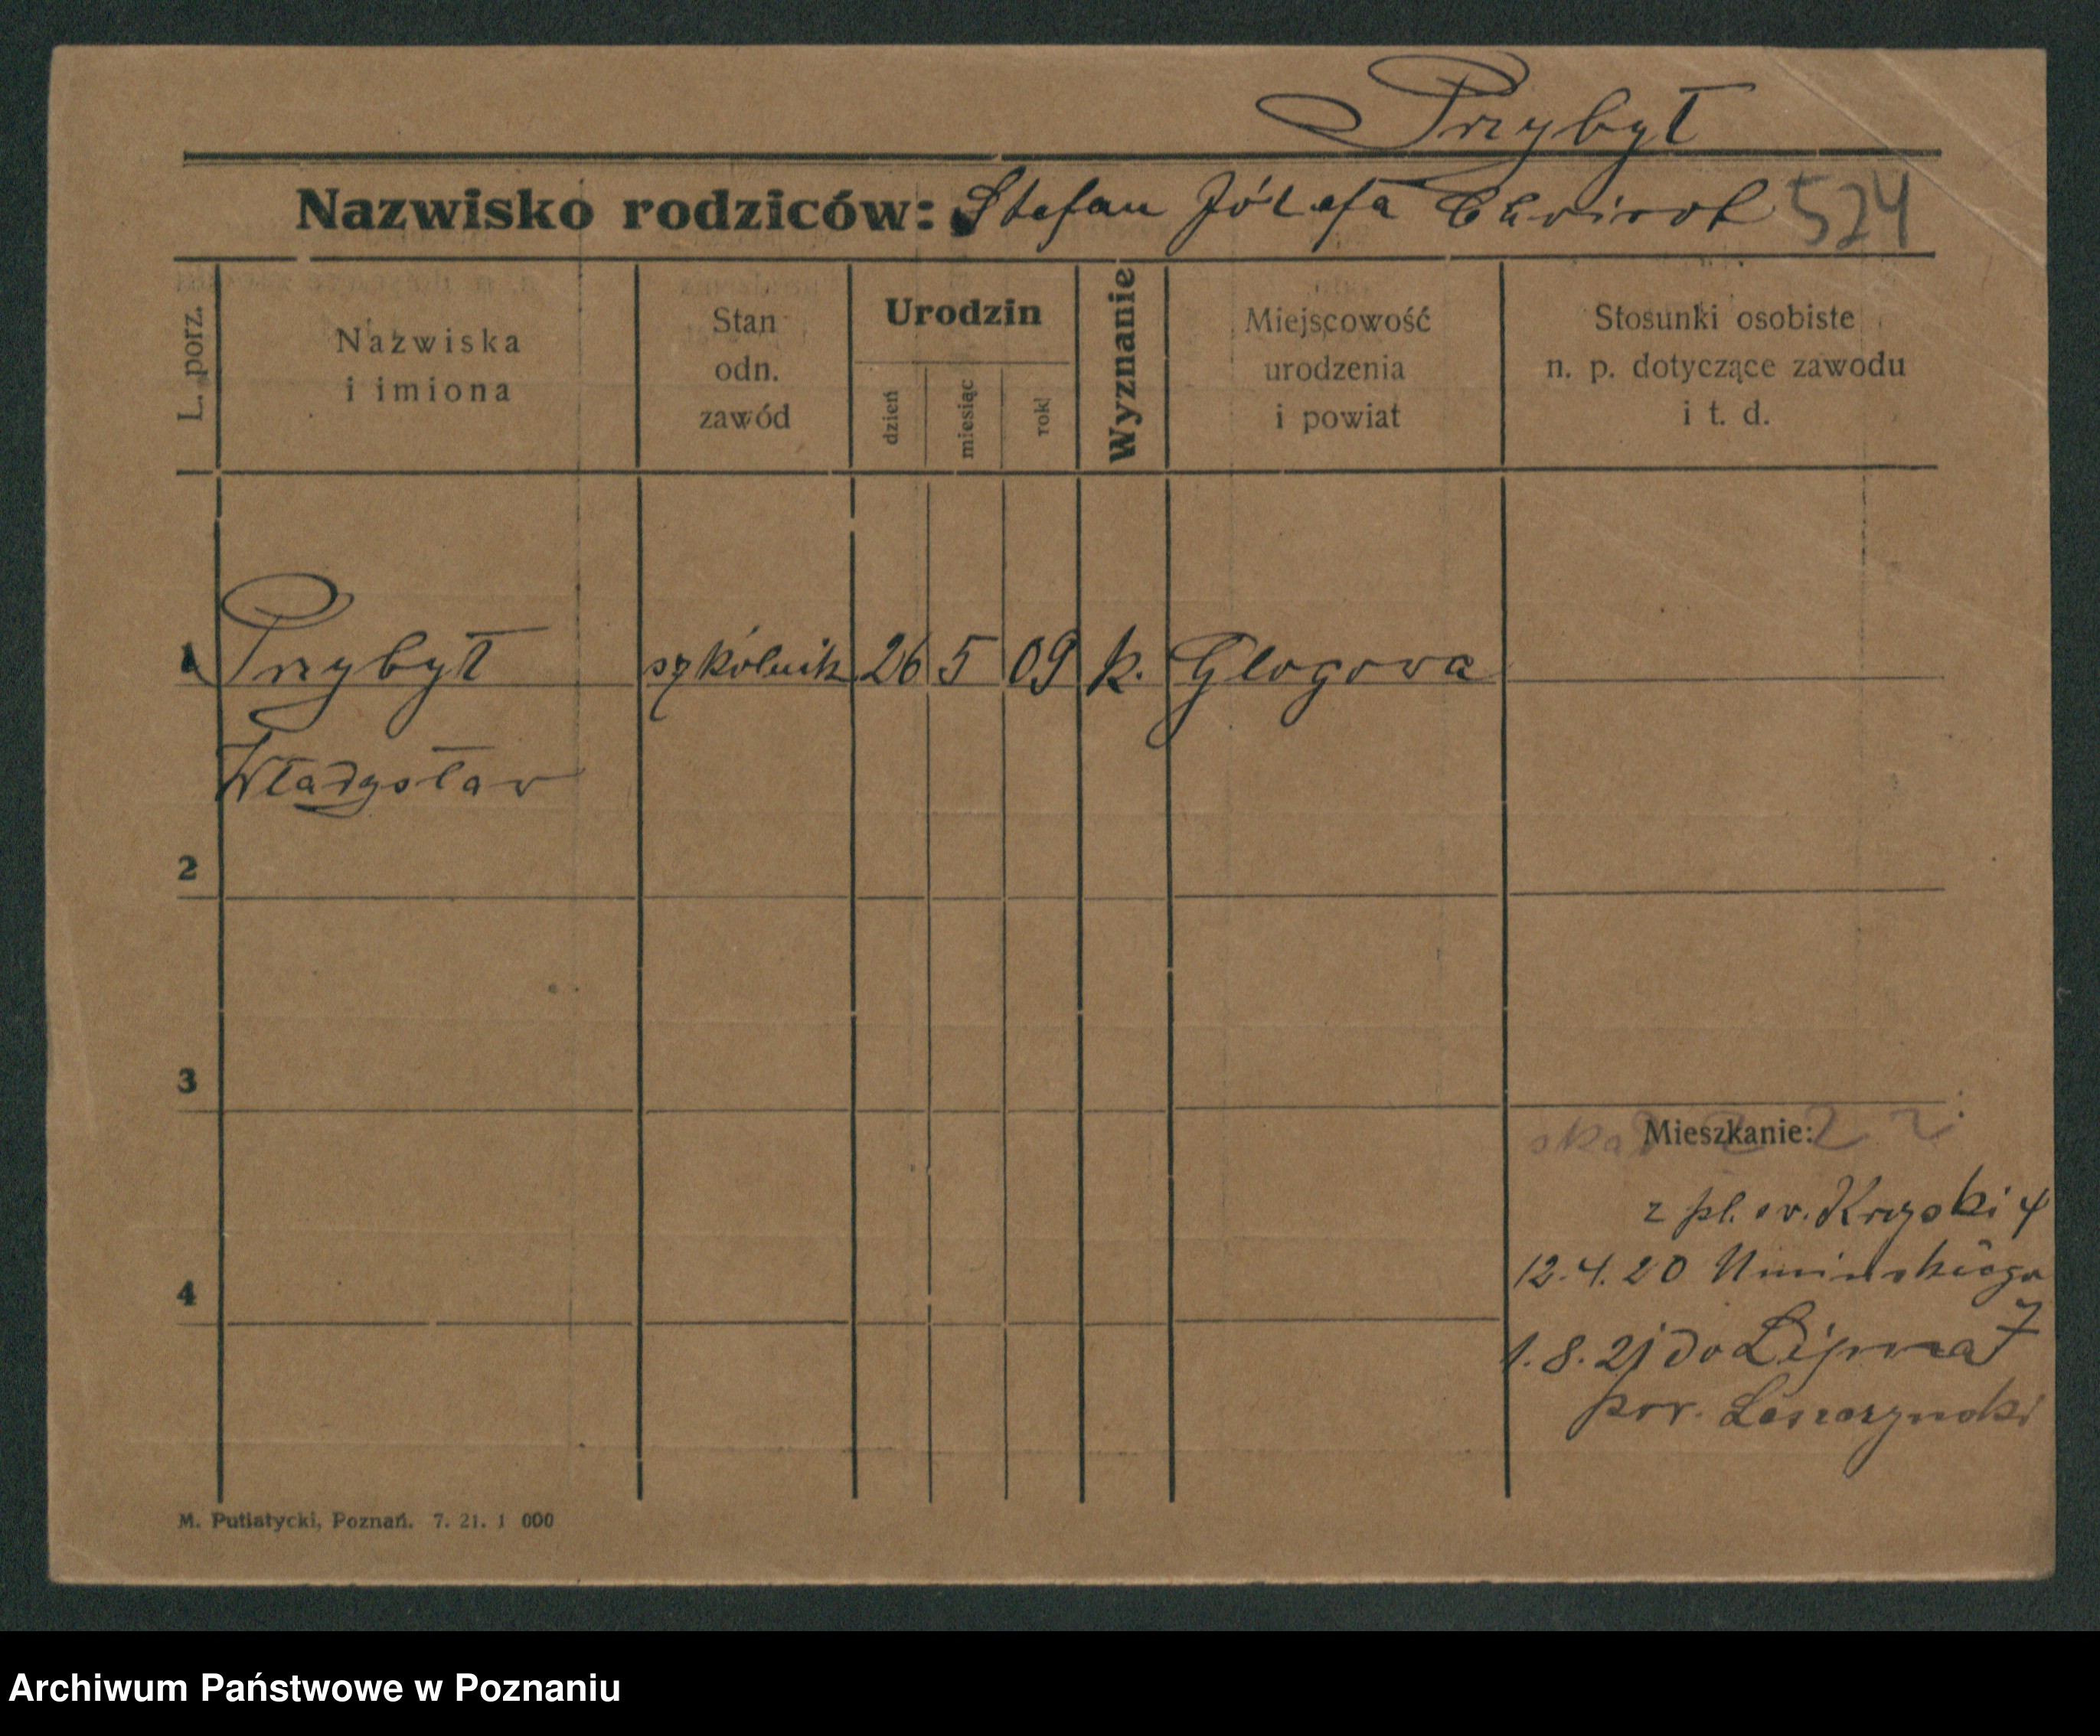 Przybył
Nazwisko rodziców: Stefan Józefa 524
L. porz.
Nazwiska
i imiona
Stan
odn.
zawód
Urodzin
dzień
miesiąc
rok
Wyznanie
Miejscowość
urodzenia
i powiat
Stosunki osobiste
n. p. dotyczące zawodu
i t. d.
1 Przybył szkólnik 26 5 09 k. Glogowa
Władysław
2
3
Mieszkanie:
z pl. św. Krzyski 4
12.4.20 Umińskiego 7
4
1.8.21 do Lipna
pow. Leszczyński
M. Putiatycki, Poznań. 7. 21. 1 000
Archiwum Państwowe w Poznaniu